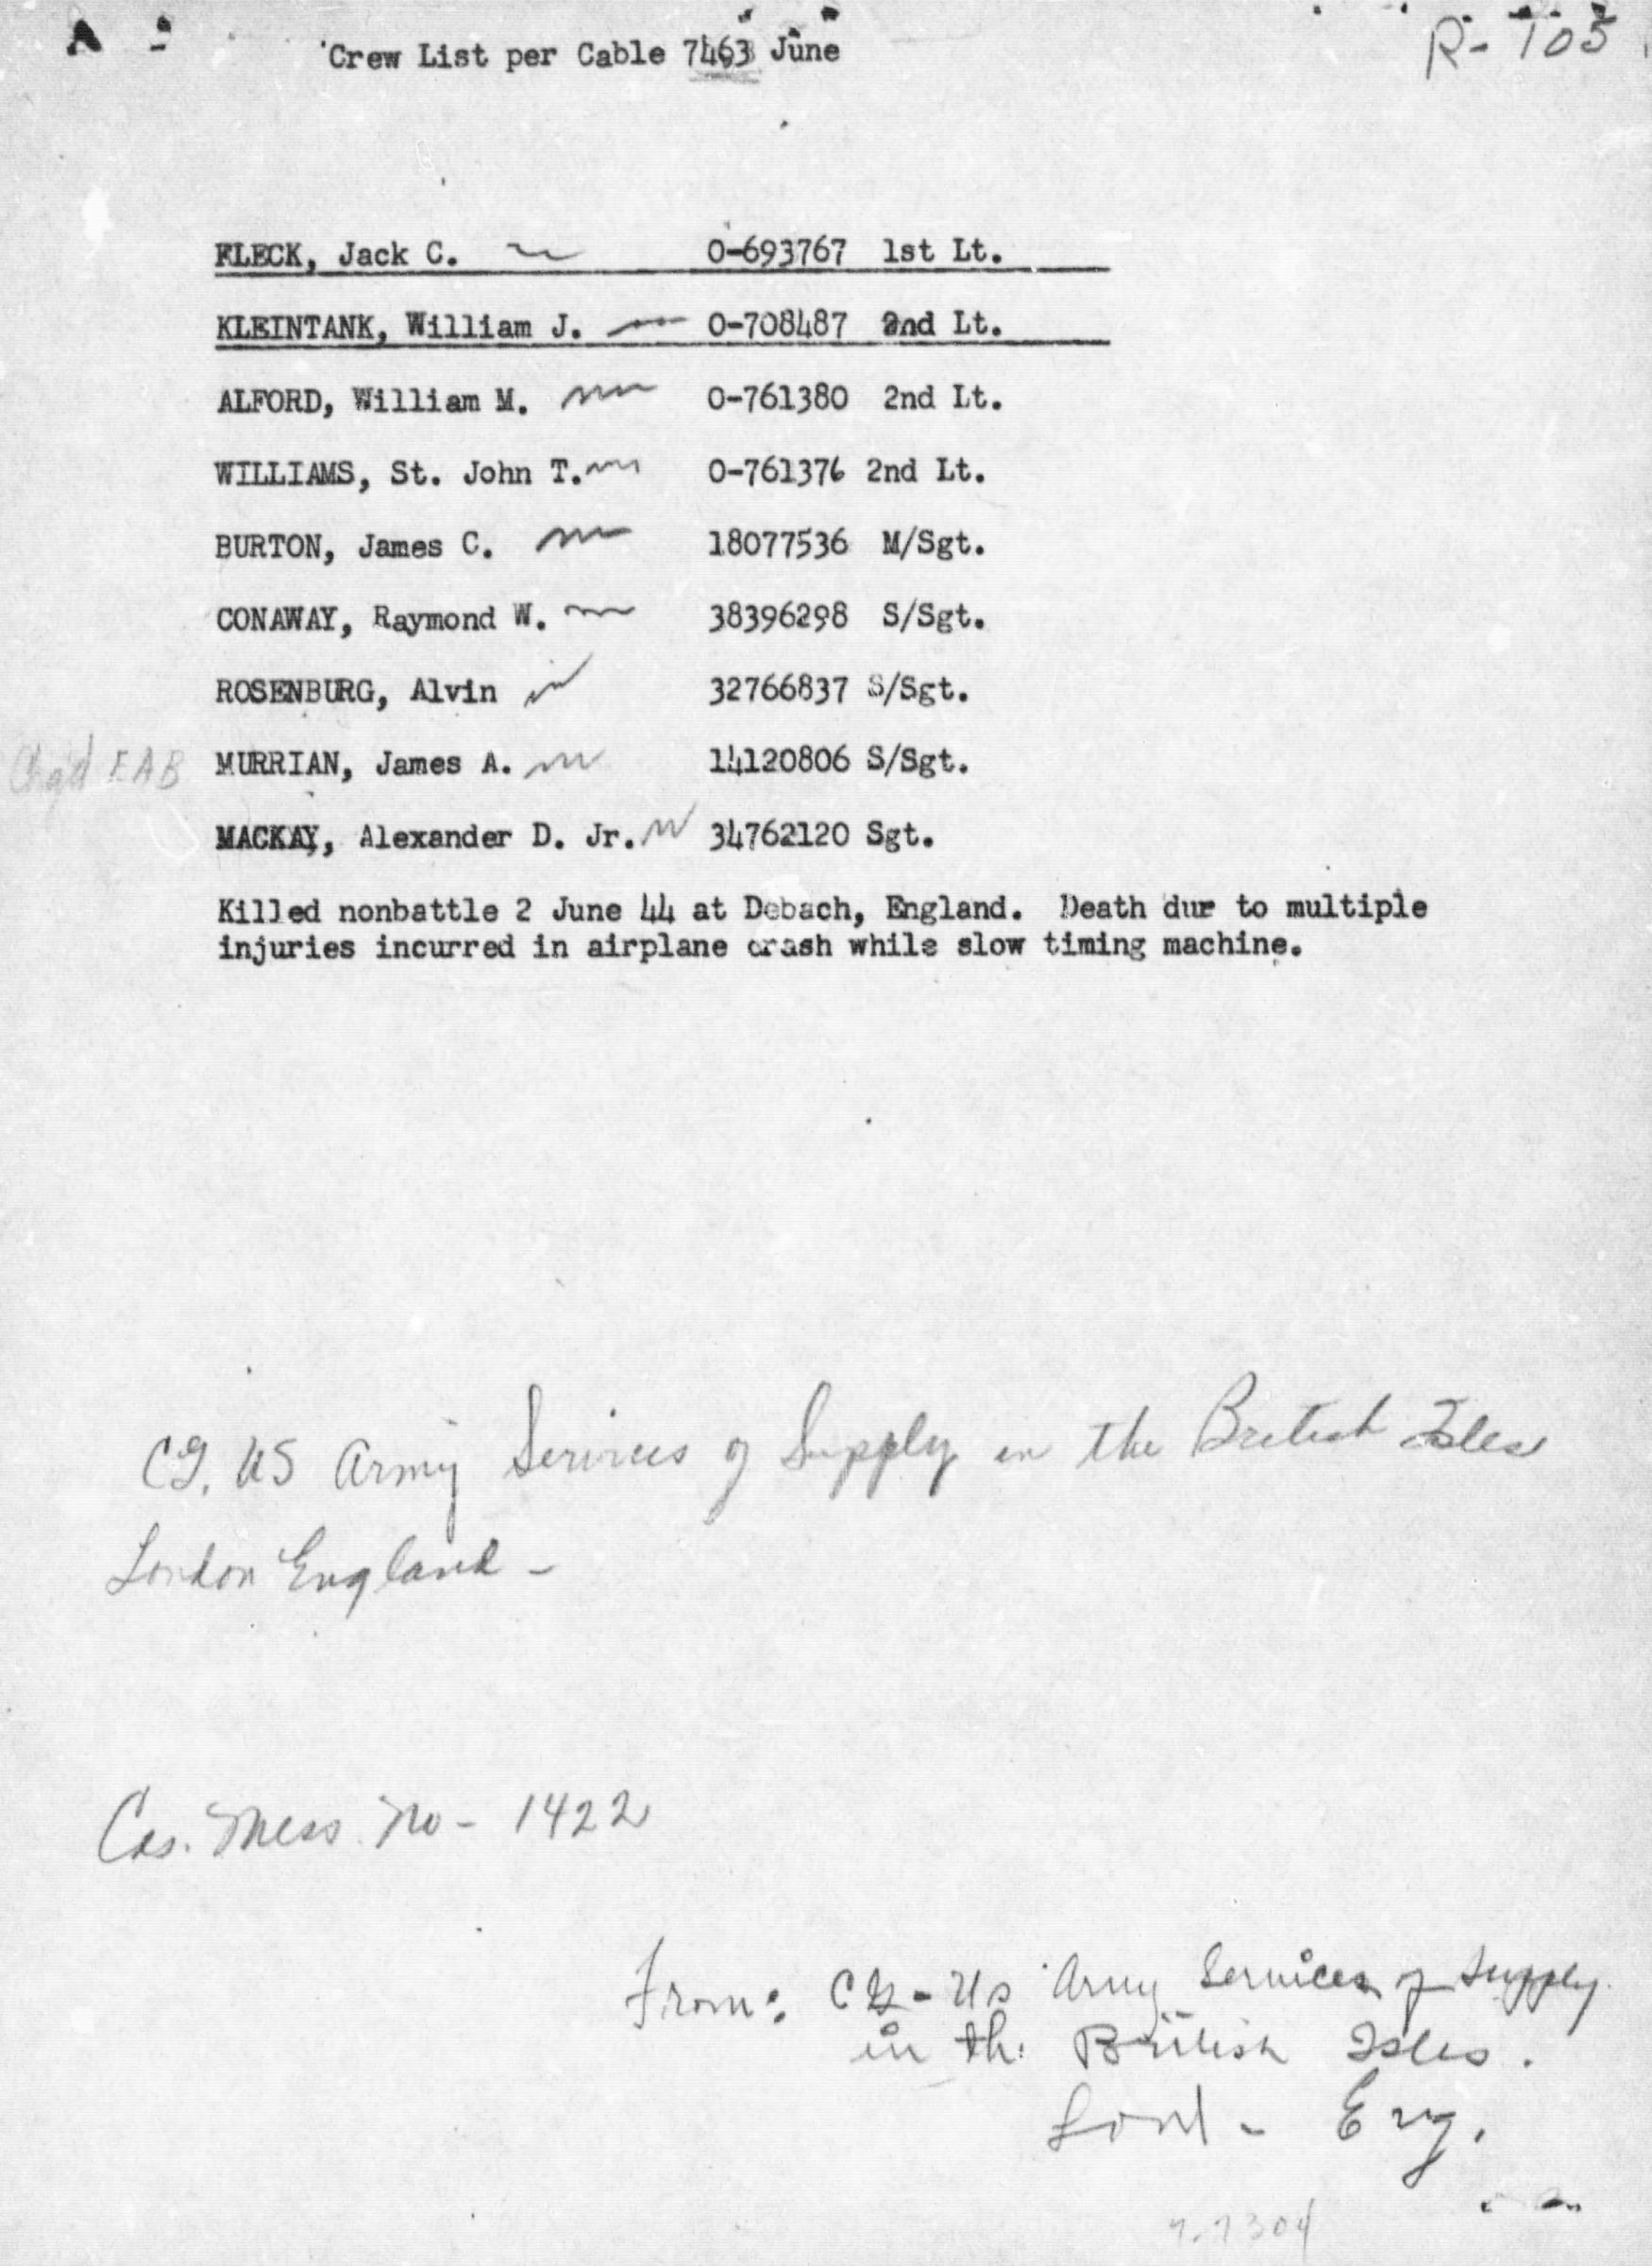 R-105
Crew List per Cable 7463 June
FLECK, Jack C. 0-693767 1st Lt.
KLEINTANK, William J. 0-708487 2nd Lt.
ALFORD, William M. 0-761380 2nd Lt.
WILLIAMS, St. John T. 0-761376 2nd Lt.
BURTON, James C. 18077536 M/Sgt.
CONAWAY, Raymond W. 38396298 S/Sgt.
ROSENBURG, Alvin 32766837 S/Sgt.
Chg'd EAB MURRIAN, James A. 14120806 S/Sgt.
MACKAY, Alexander D. Jr. 34762120 Sgt.
Killed nonbattle 2 June 44 at Debach, England. Death dur to multiple
injuries incurred in airplane crash while slow timing machine.
CG, US Army Services of Supply in the British Isles
London England -
Cas. Mess. No - 1422
From: CG - US Army Services of Supply
in the British Isles.
Lond - Eng.